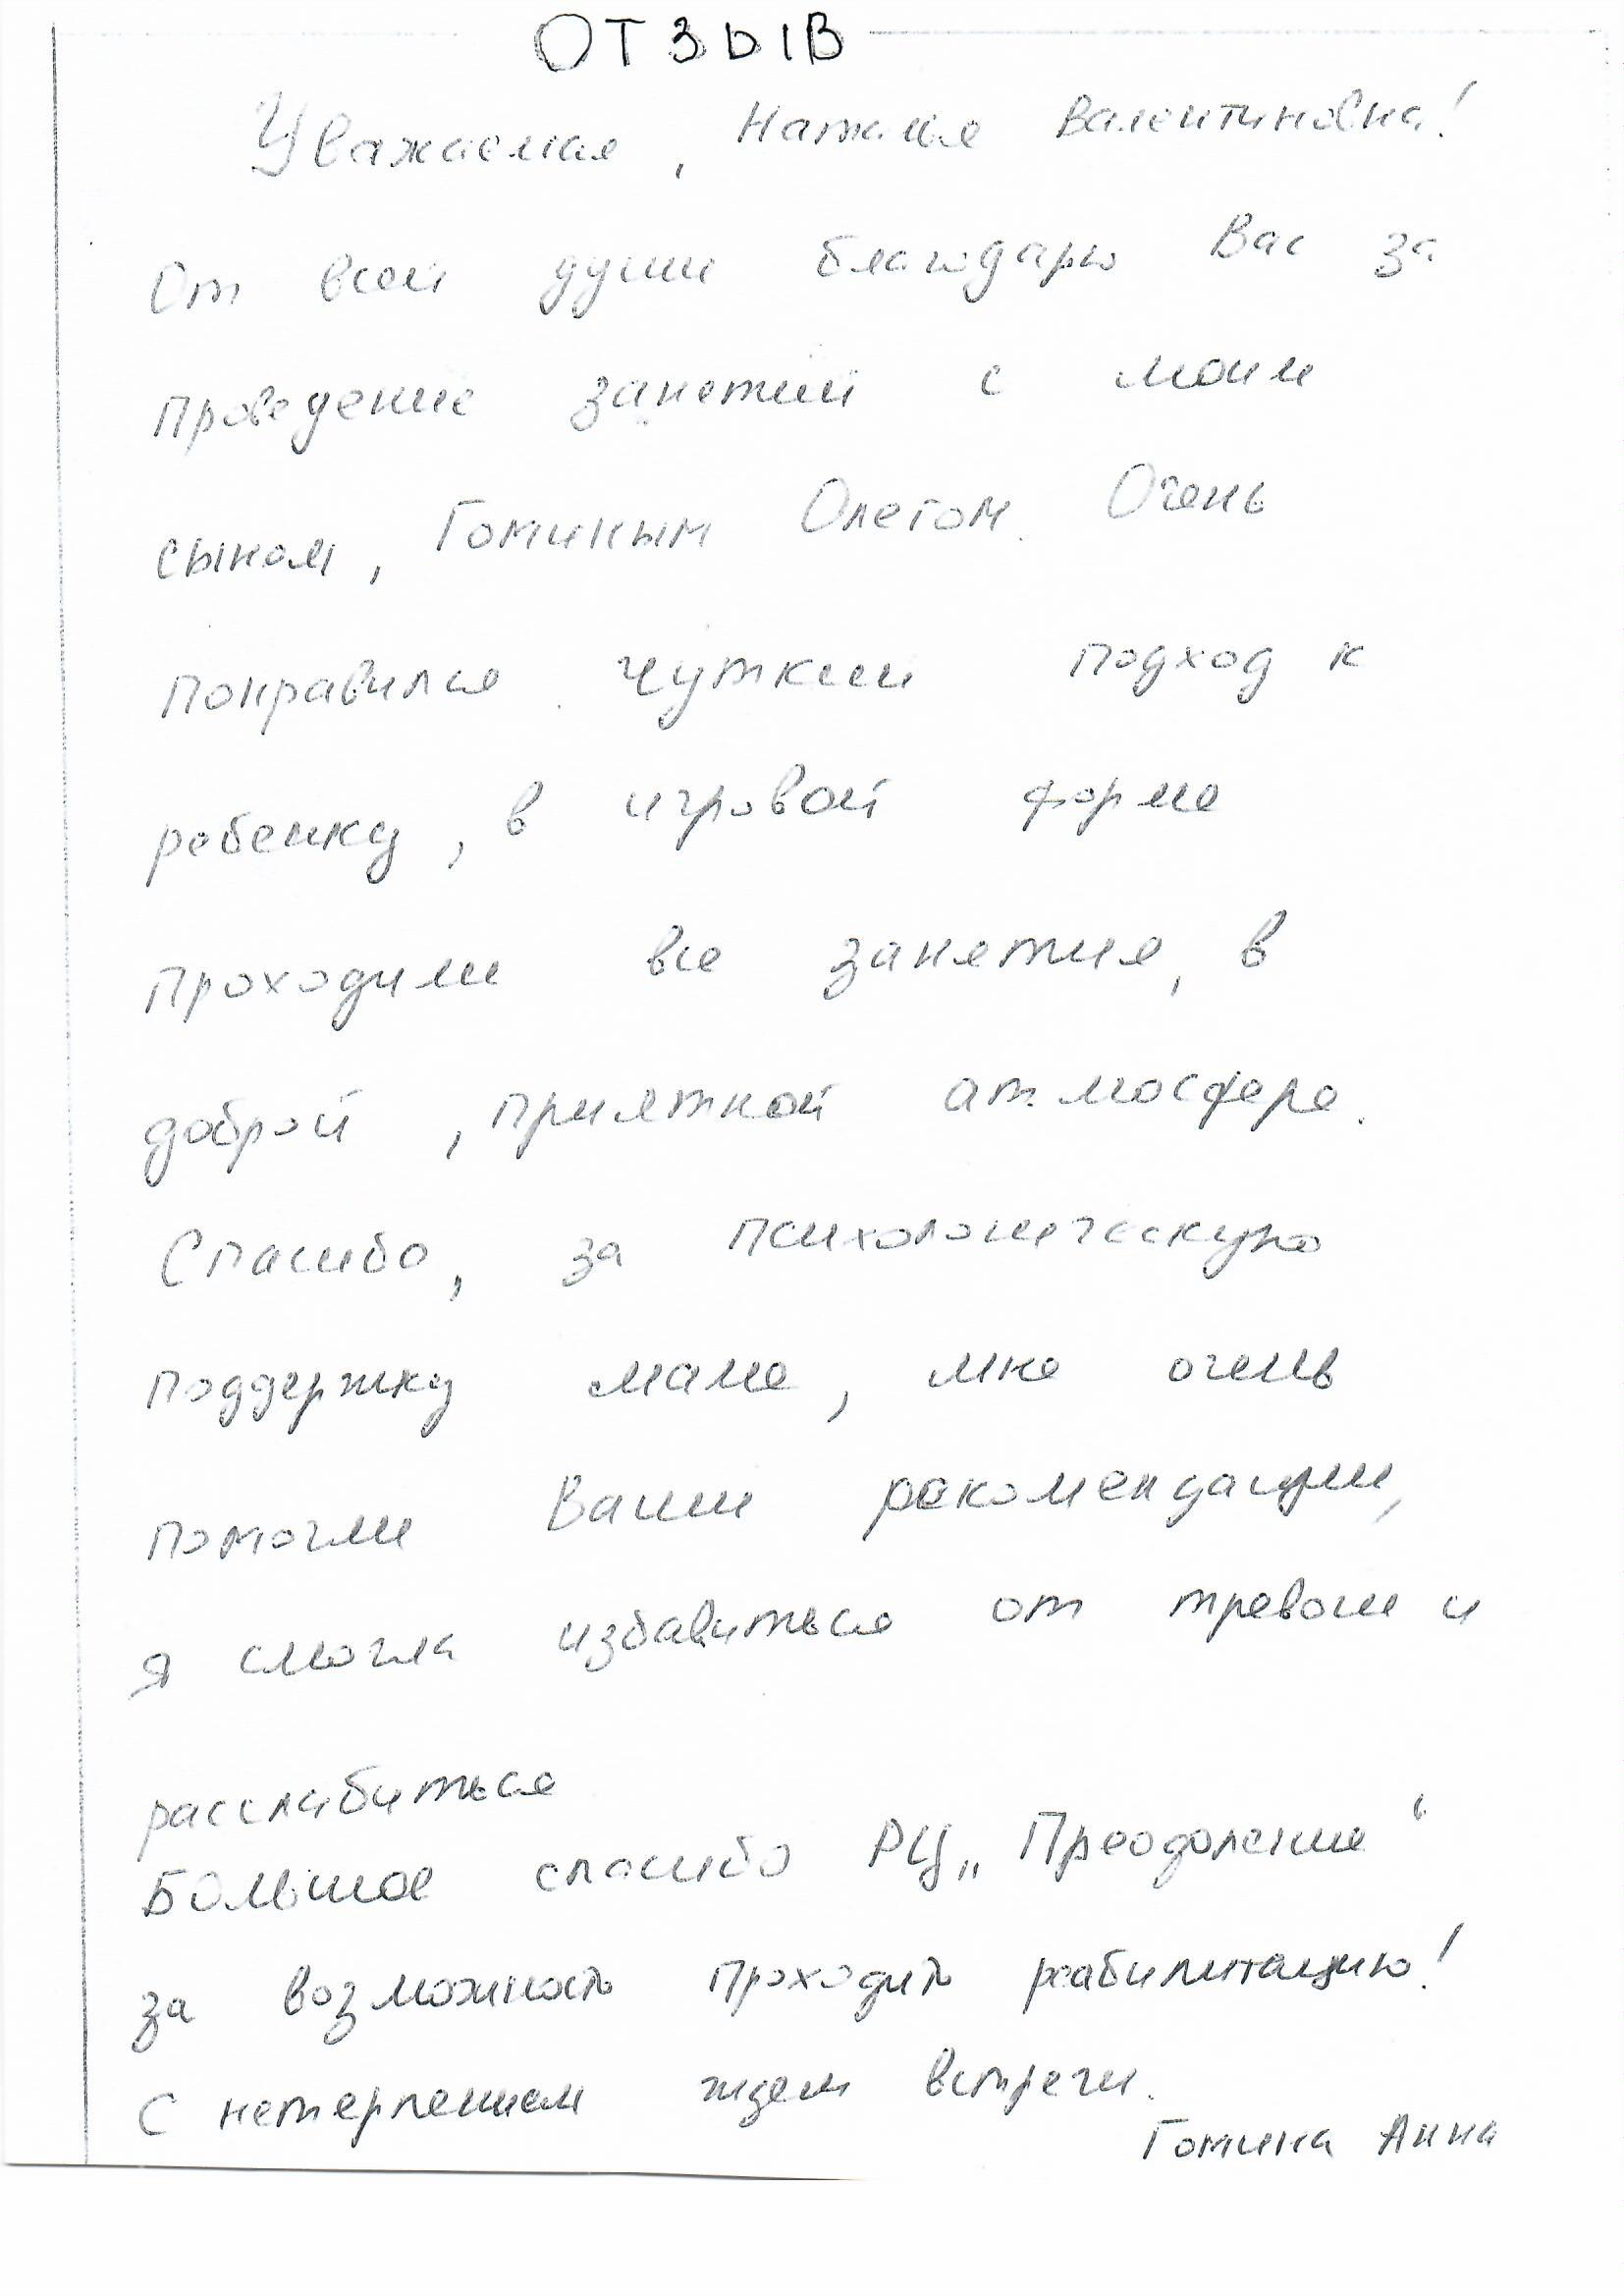 ОТЗЫВ
Уважаемая, Наталья Валентиновна!
От всей души благодарю Вас за
проведение занятий с моим
сыном, Гоминым Олегом. Очень
понравился чуткий подход к
ребенку, в игровой форме
проходили все занятия, в
доброй, приятной атмосфере.
Спасибо, за психологическую
поддержку маме, мне очень
помогли Ваши рекомендации,
я смогла избавиться от тревоги и
расслабиться
Большое спасибо РЦ „Преодоление“
за возможность проходить реабилитацию!
С нетерпением ждем встречи.
Гомина Анна